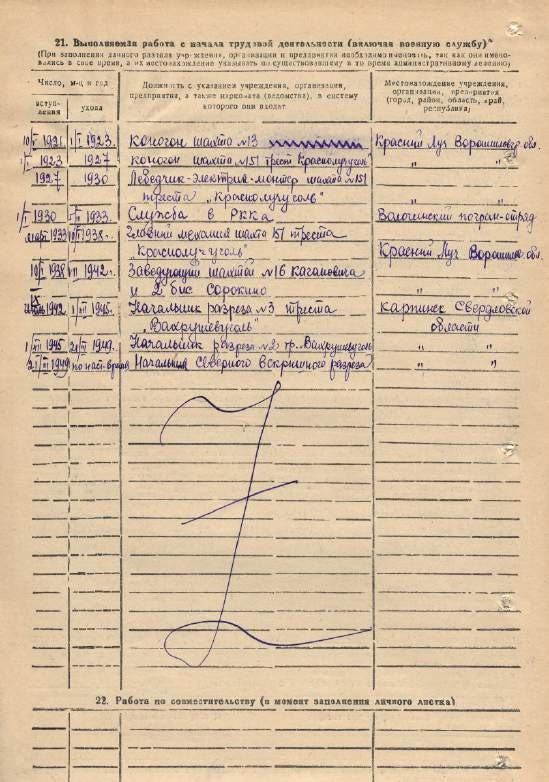 21. Выполняемая работа с начала трудовой деятельности (включая военную службу)
(При заполнении данного раздела учреждения, организации и предприятия необходимо именовать, так как они имено-
вались в свое время, а их местонахождение указывать по существовавшему в то время административному делению)
Число, м-ц и год
вступ-
ления
ухода
Должность с указанием учреждения, организации,
предприятия, а также наркомата (ведомства), в систему
которого они входят
Местонахождение учреждения,
организации, предприятия
(город, район, область, край,
республика)
1921. 1923. коногон шахта №13 Красный Луч Ворошиловгр обл.
1923 1927 коногон шахта №151 трест Краснолучуголь " "
1927 1930 Лебедчик-Электрик-монтер шахта №151
треста „Краснолучуголь" " "
1930 1933. Служба в РККА Волочинский погран-отряд
март 1933 1938. Главный механик шахта 151 треста
„Краснолучуголь" Красный Луч Ворошил. обл.
1938 1942. Заведующий шахтой №16 Кагановича
и 2 бис Сорокино " "
1942 1945. Начальник разреза №3 треста Карпинск Свердловской
„Вахрушевуголь" области
1945 1949. Начальник разреза №2 тр. „Вахрушевуголь " "
1949 по наст. время Начальник Северного вскрышного разреза " "
22. Работа по совместительству (в момент заполнения личного листка)